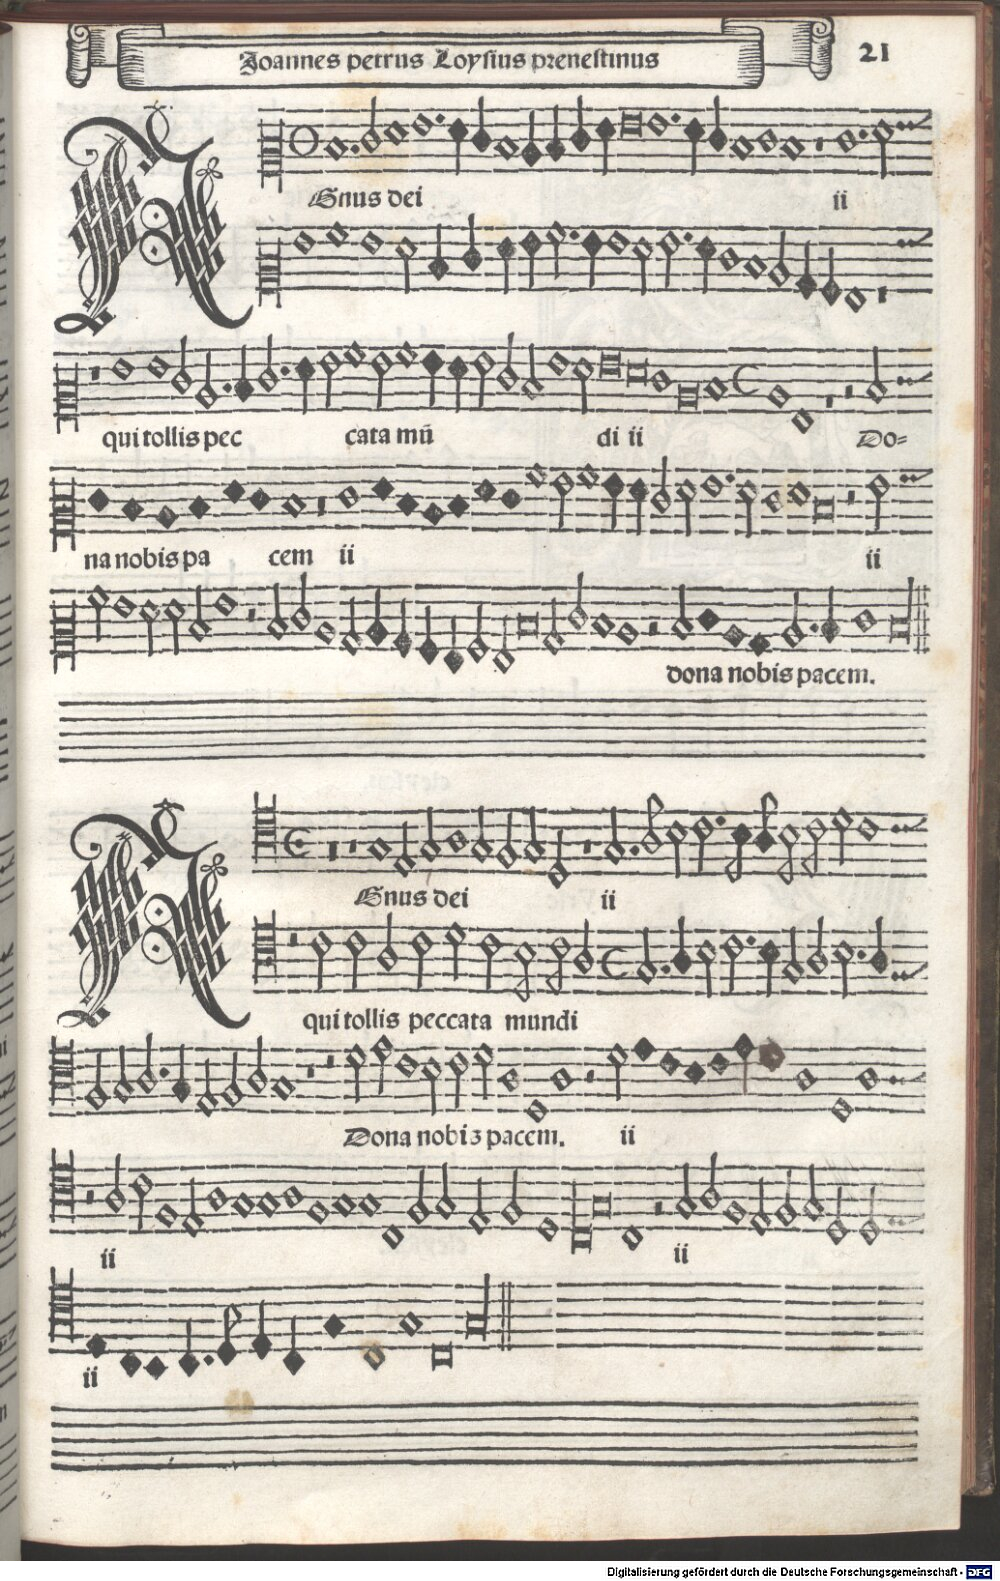 Joannes petrus Loysius prenestinus 21
AGnus dei ii
qui tollis pec cata mũ di ii Do=
na nobis pa cem ii ii
dona nobis pacem.
AGnus dei ii
qui tollis peccata mundi
Dona nobiz pacem. ii
ii ii
ii
Digitalisierung gefördert durch die Deutsche Forschungsgemeinschaft - DFG